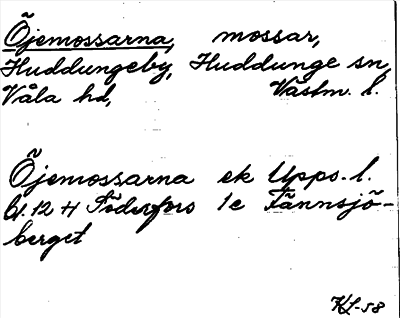 Öjemossarna, mossar,
Huddungeby, Huddunge sn,
Våla hd, Västm. l.
Öjemossarna ek Upps. l.
bl. 12 H Söderfors 1e Tännsjö-
berget
KL-58